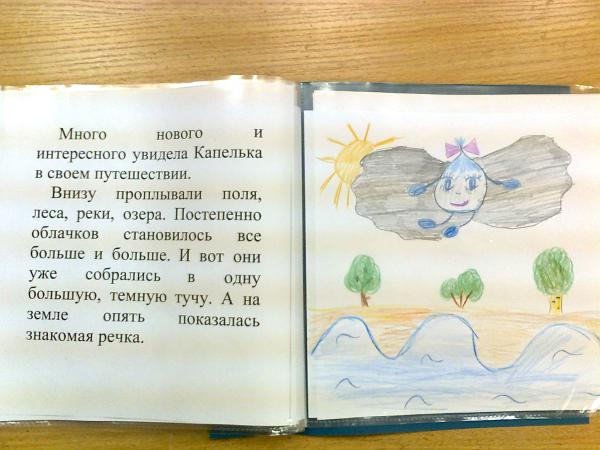 Много нового и
интересного увидела Капелька
в своем путешествии.
Внизу проплывали поля,
леса, реки, озера. Постепенно
облачков становилось все
больше и больше. И вот они
уже собрались в одну
большую, темную тучу. А на
земле опять показалась
знакомая речка.